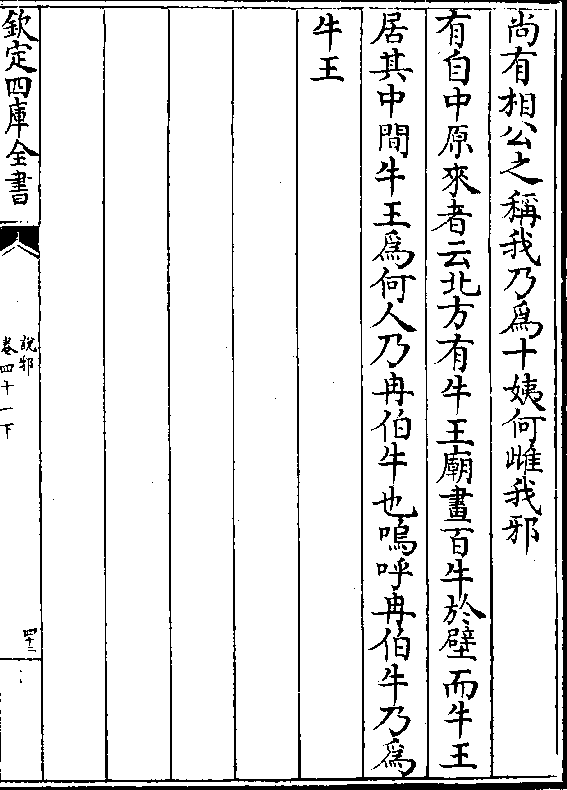 尚有相公之稱我乃爲十姨何雌我邪
有自中原來者云北方有牛王廟畫百牛於壁而牛王
居其中間牛王爲何人乃冉伯牛也嗚呼冉伯牛乃爲
牛王
欽定四庫全書
說郛
卷四十一下
四十二